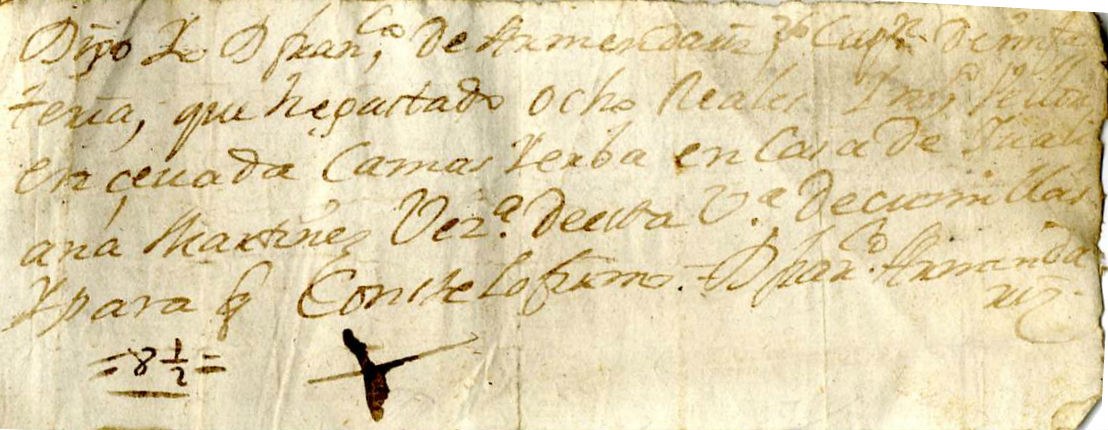 Digo Yo D Franco, de Armendariz Capn. de infan
teria, que he gastado ocho Reales Vellon
en cevada Camas Yerba en Casa de Juali
ana Martinez Vezª. de esta Vª de cornillas
Y para q Conste lo firmo. = D Franco. Armenda
riz
= 8 1/2 =